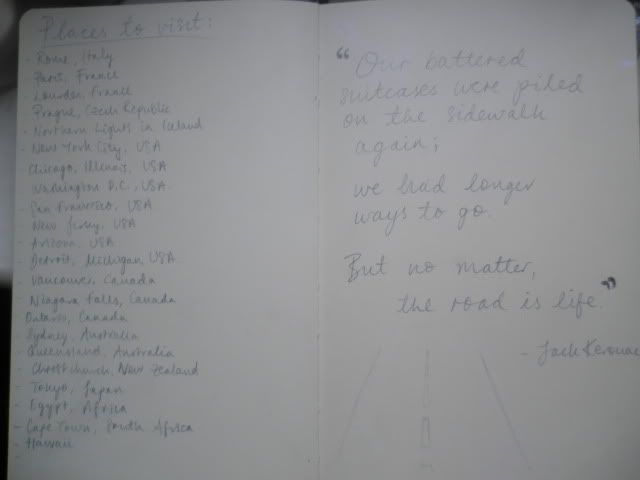 Places to visit:
- Rome, Italy
Paris, France
- Lourdes, France
Prague, Czech Republic
- Northern Lights in Iceland
- New York City, USA
Chicago, Illinois, USA
Washington D.C., USA
- San Francisco, USA
New Jersey, USA
- Arizona, USA
- Detroit, Michigan, USA
- Vancouver, Canada
- Niagara Falls, Canada
Ontario, Canada
- Sydney, Australia
- Queensland, Australia
- Christchurch, New Zealand
- Tokyo, Japan
- Egypt, Africa
- Cape Town, South Africa
- Hawaii
-
"Our battered
suitcases were piled
on the sidewalk
again;
we had longer
ways to go.
But no matter,
the road is life."
- Jack Kerouac